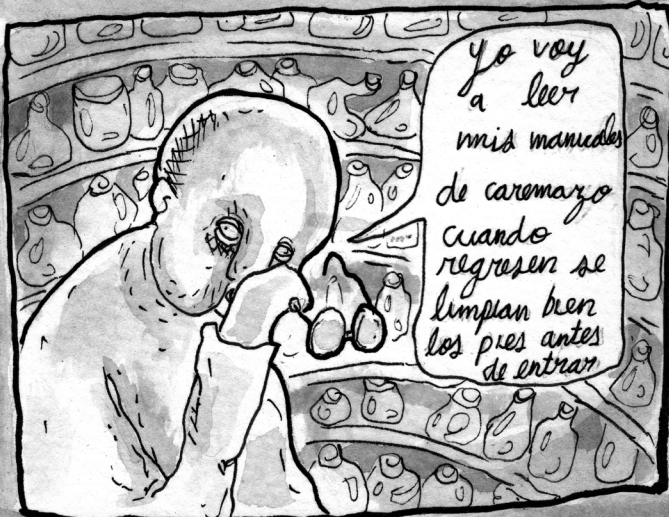 yo voy
a leer
mis manuales
de caremazo
cuando
regresen se
limpian bien
los pies antes
de entrar